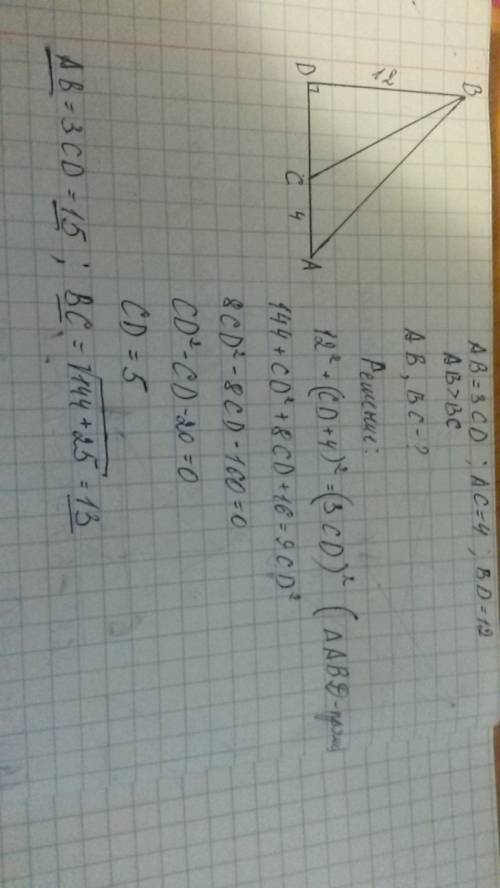 AB = 3CD ; AC = 4 ; BD = 12
AB > BC
AB, BC - ?
Решение:
12² + (CD + 4)² = (3CD)² (ΔABD - прям
144 + CD² + 8CD + 16 = 9CD²
8CD² - 8CD - 160 = 0
CD² - CD - 20 = 0
CD = 5
AB = 3CD = 15 ; BC = √144 + 25 = 13
B
12
D
C
4
A